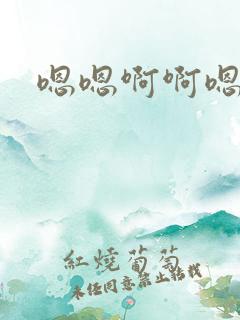 嗯嗯啊啊嗯
紅燒葡萄
未经同意禁止转载